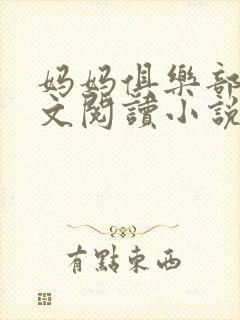 妈妈俱樂部
文閱讀小說
有點東西